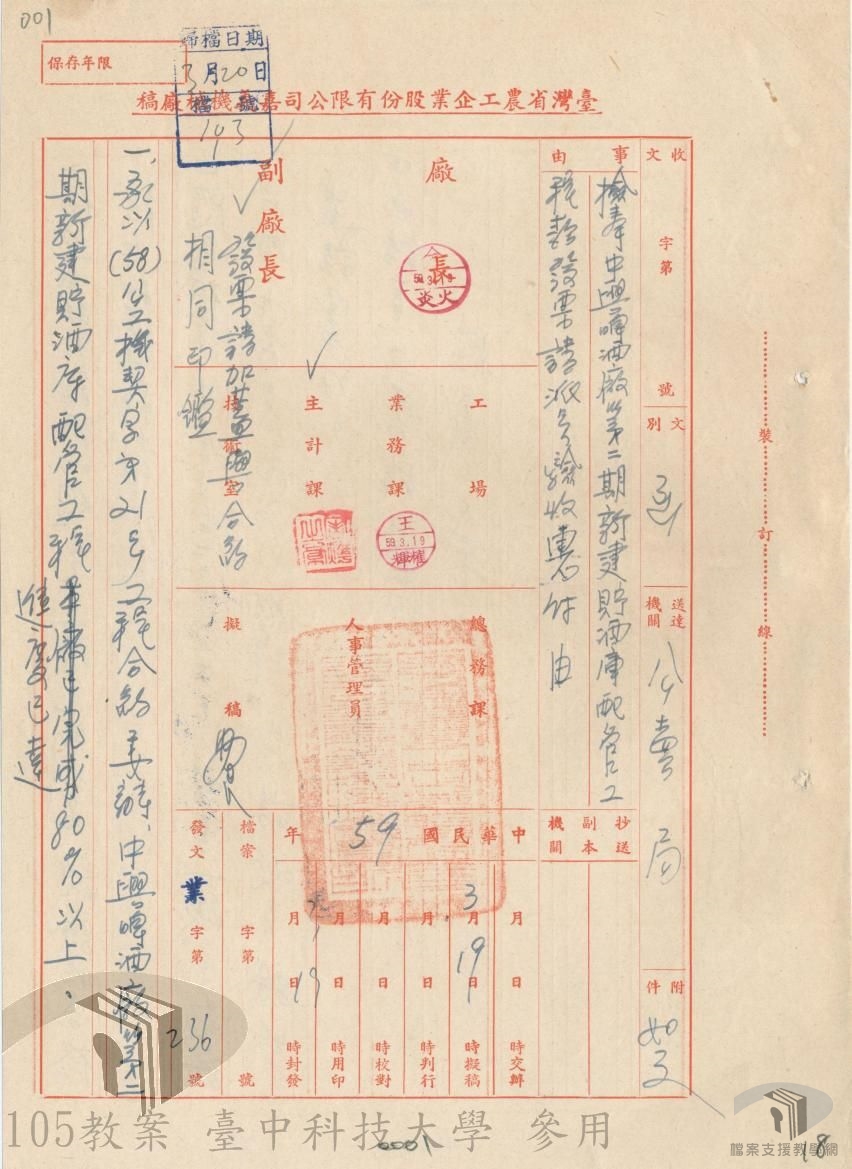 001
保存年限
歸檔日期
3月20日
檔號
193
臺灣省農工企業股份有限公司嘉義機械廠稿
收文 字第 號
文別 函
送達機關 公賣局
附件 如文
事由
檢奉中興啤酒廠第二期新建貯酒庫配管工
程款發票請派員驗收惠付由
抄送副本機關
廠長
59.3.19
副廠長
發票請加蓋與合約
相同印鑑
工場
業務課
王
59.3.19
主計課
技術室
總務課
人事管理員
擬稿
中華民國59年
月 日 時交辦
3月19日 時擬稿
月 日 時判行
月 日 時校對
月 日 時用印
月19日 時封發
檔案 字第 號
發文 業 字第 236 號
一、承以(58)生工機契字第21號工程合約委辦、中興啤酒廠第二
期新建貯酒庫配管工程本廠已完成80%以上、
進度已達
裝訂線
105教案 臺中科技大學 參用
0001
檔案支援教學網
18